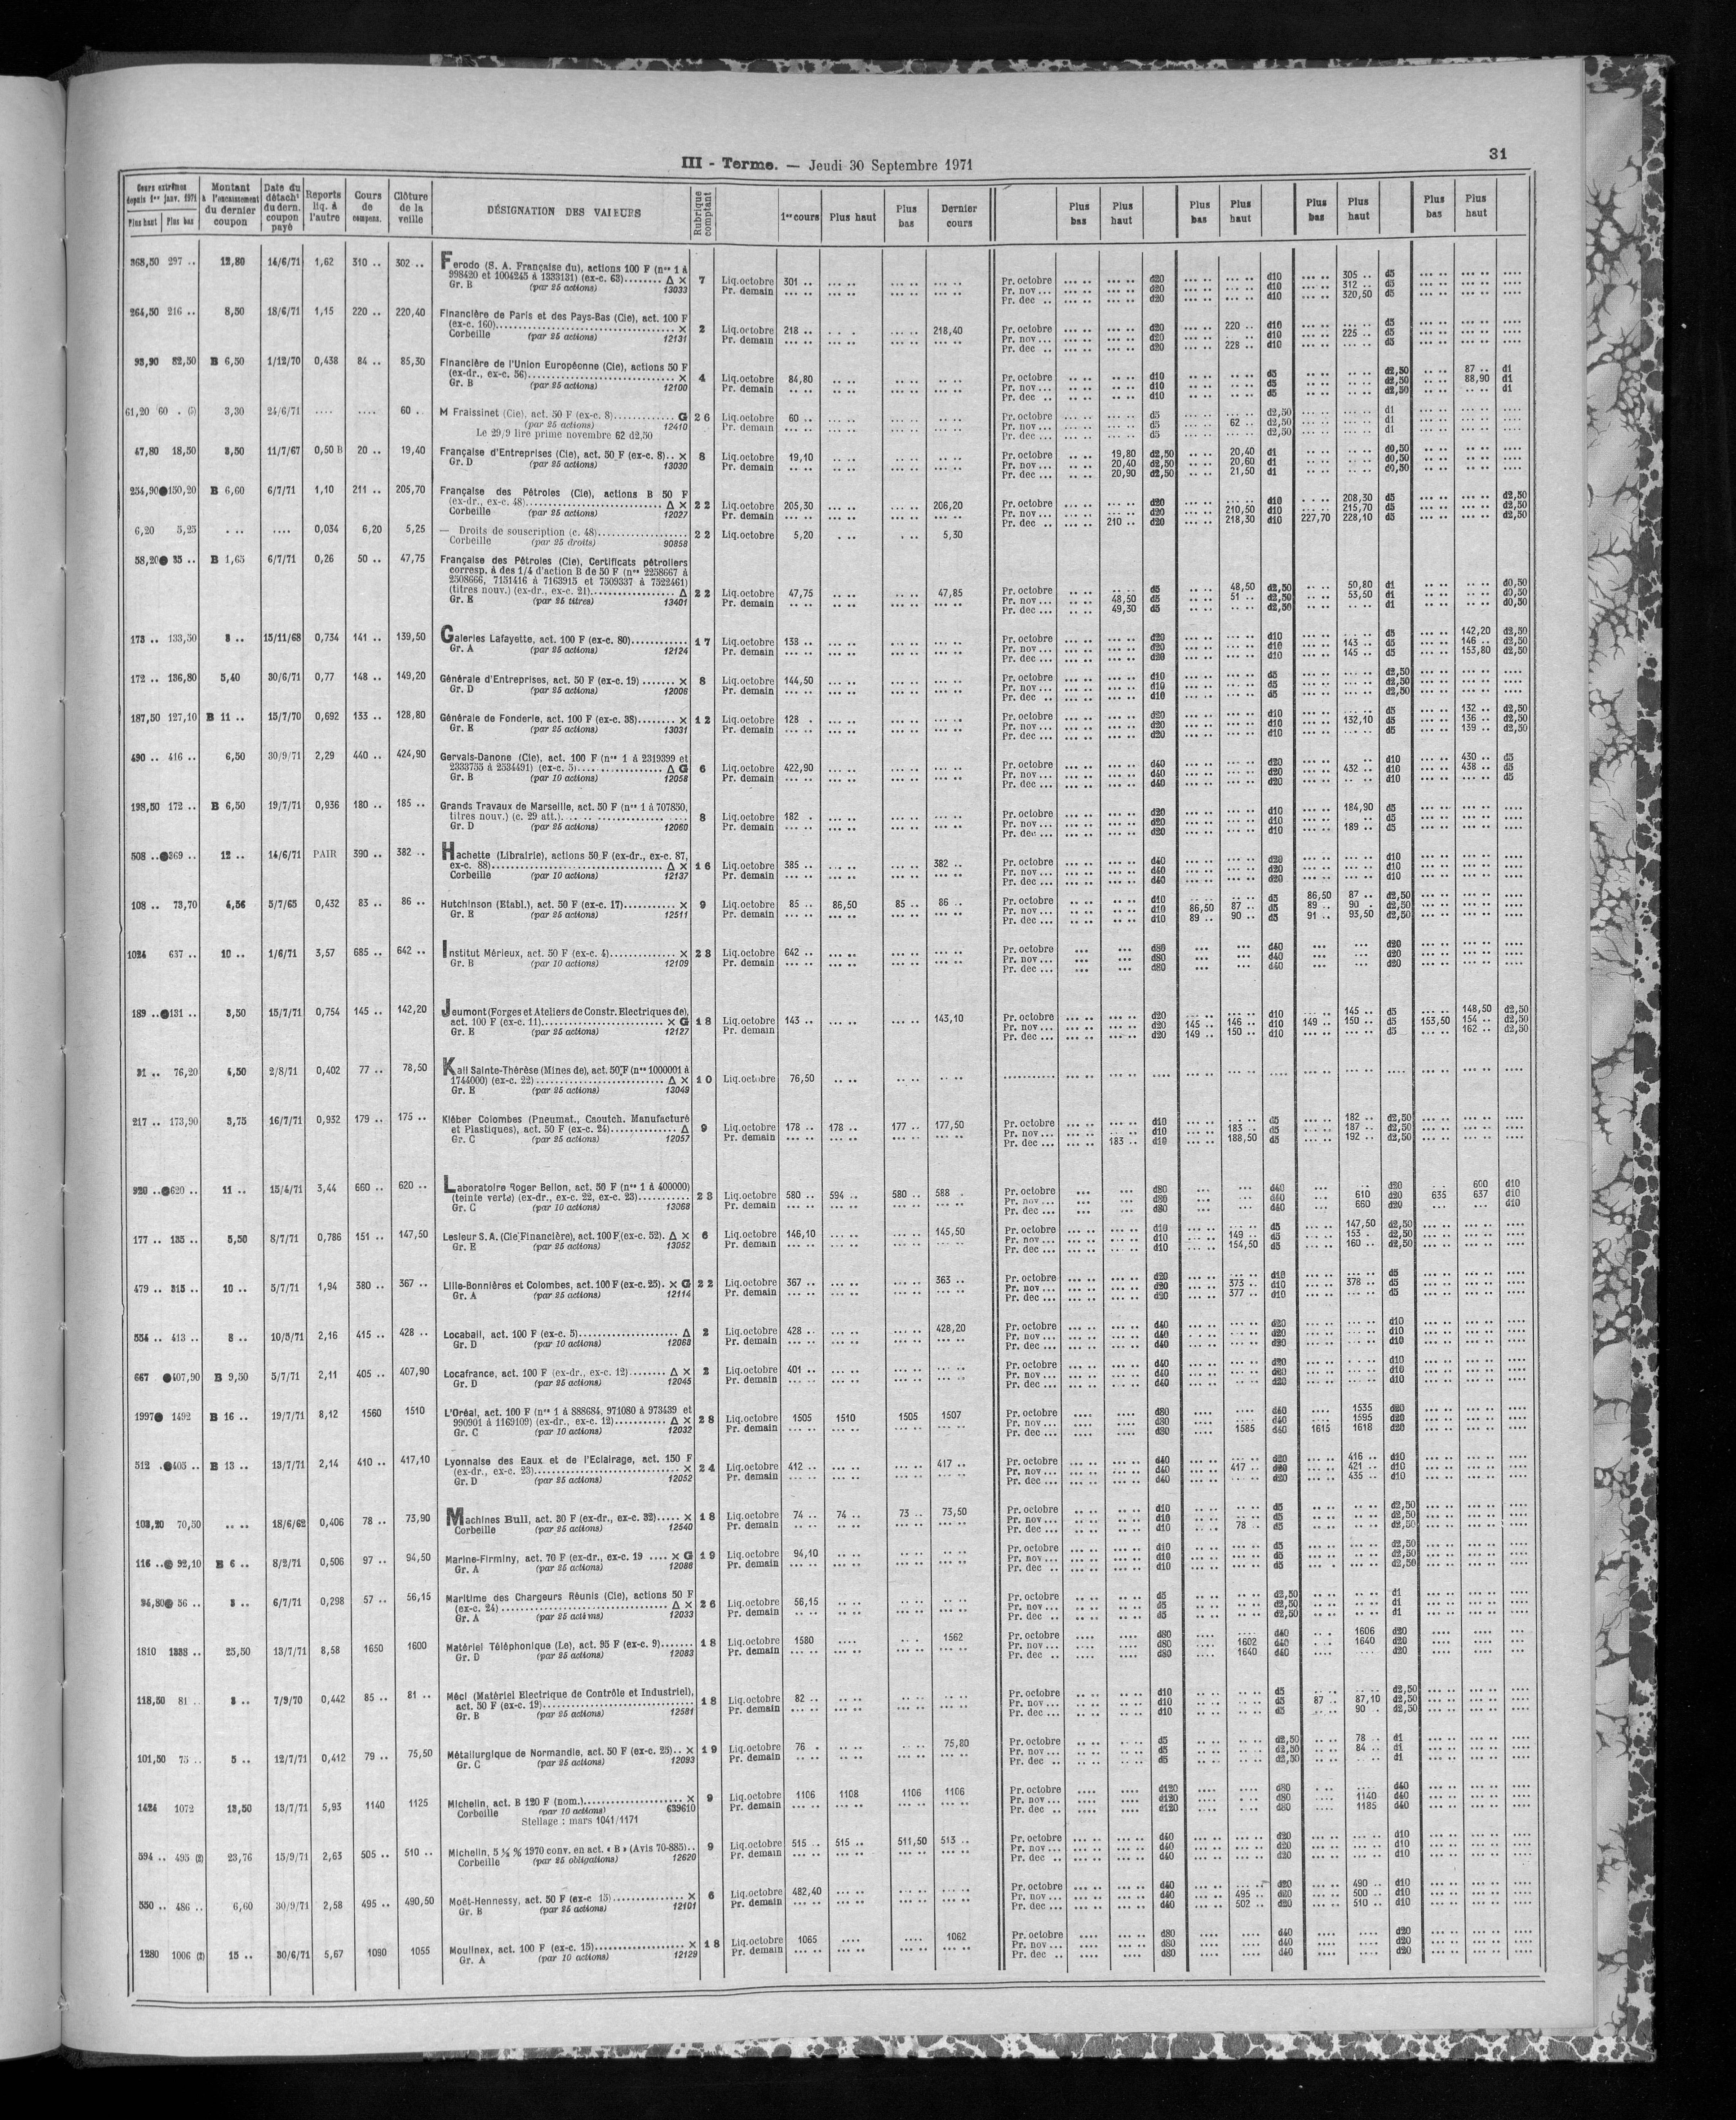 III - Terme. — Jeudi 30 Septembre 1971
31
Cours extrêmes depuis 1er janv. 1971 Plus haut Plus bas | Montant à l'encaissement du dernier coupon | Date du détach' du dern. coupon payé | Reports liq. à l'autre | Cours de compens. | Clôture de la veille | DÉSIGNATION DES VALEURS | Rubrique comptant | 1er cours | Plus haut | Plus bas | Dernier cours | Plus bas | Plus haut | Plus bas | Plus haut | Plus bas | Plus haut | Plus bas | Plus haut
368,50 297 .. 12,80 14/6/71 1,62 310 .. 302 .. Ferodo (S. A. Française du), actions 100 F (nos 1 à
998420 et 1004245 à 1333131) (ex-c. 63)........ Δ × 7 Liq.octobre 301 .. Pr. octobre d20 d10 305 .. d5
Gr. B (par 25 actions) 13033 Pr. demain Pr. nov... d20 d10 312 .. d5
Pr. dec .. d20 d10 320,50 d5
264,50 216 .. 8,50 18/6/71 1,15 220 .. 220,40 Financière de Paris et des Pays-Bas (Cie), act. 100 F
(ex-c. 160)........ × 2 Liq.octobre 218 .. 218,40 Pr. octobre d20 220 .. d10 d5
Corbeille (par 25 actions) 12131 Pr. demain Pr. nov... d20 d10 225 .. d5
Pr. dec .. d20 228 .. d10 d5
93,90 82,50 B 6,50 1/12/70 0,438 84 .. 85,30 Financière de l'Union Européenne (Cie), actions 50 F
(ex-dr., ex-c. 56)........ × 4 Liq.octobre 84,80 Pr. octobre d10 d5 d2,50 87 .. d1
Gr. B (par 25 actions) 12100 Pr. demain Pr. nov... d10 d5 d2,50 88,90 d1
Pr. dec .. d10 d5 d2,50 d1
61,20 60 . (5) 3,30 24/6/71 .... .... 60 .. M Fraissinet (Cie), act. 50 F (ex-c. 8)........ G 26 Liq.octobre 60 .. Pr. octobre d5 d2,50 d1
(par 25 actions) 12410 Pr. demain Pr. nov... d5 62 .. d2,50 d1
Le 29/9 lire prime novembre 62 d2,50 Pr. dec ... d5 d2,50 d1
47,80 18,50 3,50 11/7/67 0,50 B 20 .. 19,40 Française d'Entreprises (Cie), act. 50 F (ex-c. 8).. × 8 Liq.octobre 19,10 Pr. octobre 19,80 d2,50 20,40 d1 d0,50
Gr. D (par 25 actions) 13030 Pr. demain Pr. nov... 20,40 d2,50 20,60 d1 d0,50
Pr. dec ... 20,90 d2,50 21,50 d1 d0,50
254,90●150,20 B 6,60 6/7/71 1,10 211 .. 205,70 Française des Pétroles (Cie), actions B 50 F
(ex-dr., ex-c. 48)........ Δ × 22 Liq.octobre 205,30 206,20 Pr. octobre d20 d10 208,30 d5 d2,50
Corbeille (par 25 actions) 12027 Pr. demain Pr. nov... d20 210,50 d10 215,70 d5 d2,50
Pr. dec .. 210 .. d20 218,30 d10 227,70 228,10 d5 d2,50
6,20 5,25 .. .. .... 0,034 6,20 5,25 — Droits de souscription (c. 48)........ 22 Liq.octobre 5,20 5,30
Corbeille (par 25 droits) 90858
58,20● 35 .. B 1,65 6/7/71 0,26 50 .. 47,75 Française des Pétroles (Cie), Certificats pétroliers
corresp. à des 1/4 d'action B de 50 F (nos 2258667 à
2508666, 7151416 à 7163915 et 7509337 à 7522461)
(titres nouv.) (ex-dr., ex-c. 21)........ Δ 22 Liq.octobre 47,75 47,85 Pr. octobre d5 48,50 d2,50 50,80 d1 d0,50
Gr. E (par 25 titres) 13401 Pr. demain Pr. nov ... 48,50 d5 51 .. d2,50 53,50 d1 d0,50
Pr. dec ... 49,30 d5 d2,50 d1 d0,50
173 .. 133,50 8 .. 15/11/68 0,734 141 .. 139,50 Galeries Lafayette, act. 100 F (ex-c. 80)........ 17 Liq.octobre 138 .. Pr. octobre d20 d10 d5 142,20 d2,50
Gr. A (par 25 actions) 12124 Pr. demain Pr. nov... d20 d10 143 .. d5 146 .. d2,50
Pr. dec ... d20 d10 145 .. d5 153,80 d2,50
172 .. 136,80 5,40 30/6/71 0,77 148 .. 149,20 Générale d'Entreprises, act. 50 F (ex-c. 19) ....... × 8 Liq.octobre 144,50 Pr. octobre d10 d5 d2,50
Gr. D (par 25 actions) 12006 Pr. demain Pr. nov... d10 d5 d2,50
Pr. dec ... d10 d5 d2,50
187,50 127,10 B 11 .. 15/7/70 0,692 133 .. 128,80 Générale de Fonderie, act. 100 F (ex-c. 38)........ × 12 Liq.octobre 128 . Pr. octobre d20 d10 d5 132 .. d2,50
Gr. E (par 25 actions) 13031 Pr. demain Pr. nov... d20 d10 132,10 d5 136 .. d2,50
Pr. dec ... d20 d10 d5 139 .. d2,50
490 .. 416 .. 6,50 30/9/71 2,29 440 .. 424,90 Gervais-Danone (Cie), act. 100 F (nos 1 à 2319399 et
2333755 à 2534491) (ex-c. 5)........ Δ G 6 Liq.octobre 422,90 Pr. octobre d40 d20 d10 430 .. d5
Gr. B (par 10 actions) 12058 Pr. demain Pr. nov... d40 d20 432 .. d10 438 .. d5
Pr. dec ... d40 d20 d10 d5
198,50 172 .. B 6,50 19/7/71 0,936 180 .. 185 .. Grands Travaux de Marseille, act. 50 F (nos 1 à 707850,
titres nouv.) (c. 29 att.)........ 8 Liq.octobre 182 . Pr. octobre d20 d10 184,90 d5
Gr. D (par 25 actions) 12060 Pr. demain Pr. nov... d20 d10 d5
Pr. dec ... d20 d10 189 .. d5
508 ..●369 .. 12 .. 14/6/71 PAIR 390 .. 382 .. Hachette (Librairie), actions 50 F (ex-dr., ex-c. 87,
ex-c. 88)........ Δ × 16 Liq.octobre 385 .. 382 .. Pr. octobre d40 d20 d10
Corbeille (par 10 actions) 12137 Pr. demain Pr. nov... d40 d20 d10
Pr. dec ... d40 d20 d10
108 .. 73,70 4,56 5/7/65 0,432 83 .. 86 .. Hutchinson (Etabl.), act. 50 F (ex-c. 17)........ × 9 Liq.octobre 85 .. 86,50 85 .. 86 .. Pr. octobre d10 d5 86,50 87 .. d2,50
Gr. E (par 25 actions) 12511 Pr. demain Pr. nov... d10 86,50 87 .. d5 89 .. 90 .. d2,50
Pr. dec ... d10 89 .. 90 .. d5 91 .. 93,50 d2,50
1024 637 .. 10 .. 1/6/71 3,57 685 .. 642 .. Institut Mérieux, act. 50 F (ex-c. 4)........ × 23 Liq.octobre 642 .. Pr. octobre d80 d40 d20
Gr. B (par 10 actions) 12109 Pr. demain Pr. nov... d80 d40 d20
Pr. dec ... d80 d40 d20
189 ..●131 .. 3,50 15/7/71 0,754 145 .. 142,20 Jeumont (Forges et Ateliers de Constr. Electriques de),
act. 100 F (ex-c. 11)........ × G 18 Liq.octobre 143 .. 143,10 Pr. octobre d20 d10 145 .. d5 148,50 d2,50
Gr. E (par 25 actions) 12127 Pr. demain Pr. nov... d20 145 .. 146 .. d10 149 .. 150 .. d5 153,50 154 .. d2,50
Pr. dec ... d20 149 .. 150 .. d10 d5 162 .. d2,50
91 .. 76,20 4,50 2/8/71 0,402 77 .. 78,50 Kali Sainte-Thérèse (Mines de), act. 50 F (nos 1000001 à
1744000) (ex-c. 22)........ Δ × 10 Liq.octobre 76,50
Gr. E (par 25 actions) 13049
217 .. 173,90 3,75 16/7/71 0,932 179 .. 175 .. Kléber Colombes (Pneumat., Caoutch. Manufacturé
et Plastiques), act. 50 F (ex-c. 24)........ Δ 9 Liq.octobre 178 .. 178 .. 177 .. 177,50 Pr. octobre d10 d5 182 .. d2,50
Gr. C (par 25 actions) 12057 Pr. demain Pr. nov... d10 183 .. d5 187 .. d2,50
Pr. dec ... 183 .. d10 188,50 d5 192 .. d2,50
920 ..●620 .. 11 .. 15/4/71 3,44 660 .. 620 .. Laboratoire Roger Bellon, act. 50 F (nos 1 à 400000)
(teinte verte) (ex-dr., ex-c. 22, ex-c. 23)........ 23 Liq.octobre 580 .. 594 .. 580 .. 588 . Pr. octobre d80 d40 d20 600 d10
Gr. C (par 10 actions) 13068 Pr. demain Pr. nov... d80 d40 610 d20 635 637 d10
Pr. dec ... d80 d40 660 d20 d10
177 .. 135 .. 5,50 8/7/71 0,786 151 .. 147,50 Lesieur S.A. (Cie Financière), act. 100 F (ex-c. 52). Δ × 6 Liq.octobre 146,10 145,50 Pr. octobre d10 d5 147,50 d2,50
Gr. E (par 25 actions) 13052 Pr. demain Pr. nov... d10 149 .. d5 153 .. d2,50
Pr. dec ... d10 154,50 d5 160 .. d2,50
479 .. 315 .. 10 .. 5/7/71 1,94 380 .. 367 .. Lille-Bonnières et Colombes, act. 100 F (ex-c. 25). × G 22 Liq.octobre 367 .. 363 .. Pr. octobre d20 d10 d5
Gr. A (par 25 actions) 12114 Pr. demain Pr. nov... d20 373 .. d10 378 .. d5
Pr. dec ... d20 377 .. d10 d5
554 .. 413 .. 8 .. 10/5/71 2,16 415 .. 428 .. Locabail, act. 100 F (ex-c. 5)........ Δ 2 Liq.octobre 428 .. 428,20 Pr. octobre d40 d20 d10
Gr. D (par 10 actions) 12068 Pr. demain Pr. nov... d40 d20 d10
Pr. dec ... d40 d20 d10
667 ●407,90 B 9,50 5/7/71 2,11 405 .. 407,90 Locafrance, act. 100 F (ex-dr., ex-c. 12)........ Δ × 2 Liq.octobre 401 .. Pr. octobre d40 d20 d10
Gr. D (par 25 actions) 12045 Pr. demain Pr. nov... d40 d20 d10
Pr. dec ... d40 d20 d10
1997● 1492 B 16 .. 19/7/71 8,12 1560 1510 L'Oréal, act. 100 F (nos 1 à 888684, 971080 à 973439 et
990901 à 1169109) (ex-dr., ex-c. 12)........ Δ × 28 Liq.octobre 1505 1510 1505 1507 Pr. octobre d80 d40 1535 d20
Gr. C (par 10 actions) 12032 Pr. demain Pr. nov... d80 d40 1595 d20
Pr. dec ... d80 1585 d40 1615 1618 d20
512 .●405 .. B 13 .. 13/7/71 2,14 410 .. 417,10 Lyonnaise des Eaux et de l'Eclairage, act. 150 F
(ex-dr., ex-c. 23)........ × 24 Liq.octobre 412 .. 417 .. Pr. octobre d40 d20 416 .. d10
Gr. D (par 25 actions) 12052 Pr. demain Pr. nov... d40 417 .. d20 421 .. d10
Pr. dec ... d40 d20 435 .. d10
103,20 70,50 .. .. 18/6/62 0,406 78 .. 73,90 Machines Bull, act. 30 F (ex-dr., ex-c. 32)..... × 18 Liq.octobre 74 .. 74 .. 73 .. 73,50 Pr. octobre d10 d5 d2,50
Corbeille (par 25 actions) 12540 Pr. demain Pr. nov... d10 d5 d2,50
Pr. dec ... d10 78 .. d5 d2,50
116 ..● 92,10 B 6 .. 8/2/71 0,506 97 .. 94,50 Marine-Firminy, act. 70 F (ex-dr., ex-c. 19 .... × G 19 Liq.octobre 94,10 Pr. octobre d10 d5 d2,50
Gr. A (par 25 actions) 12088 Pr. demain Pr. nov... d10 d5 d2,50
Pr. dec .. d10 d5 d2,50
94,80● 56 .. 3 .. 6/7/71 0,298 57 .. 56,15 Maritime des Chargeurs Réunis (Cie), actions 50 F
(ex-c. 24)........ Δ × 26 Liq.octobre 56,15 Pr. octobre d5 d2,50 d1
Gr. A (par 25 actions) 12033 Pr. demain Pr. nov... d5 d2,50 d1
Pr. dec .. d5 d2,50 d1
1810 1388 .. 25,50 13/7/71 8,58 1650 1600 Matériel Téléphonique (Le), act. 95 F (ex-c. 9)....... 18 Liq.octobre 1580 1562 Pr. octobre d80 d40 1606 d20
Gr. D (par 25 actions) 12083 Pr. demain Pr. nov... d80 1602 d40 1640 d20
Pr. dec .. d80 1640 d40 d20
118,50 81 .. 3 .. 7/9/70 0,442 85 .. 81 .. Méci (Matériel Electrique de Contrôle et Industriel),
act. 50 F (ex-c. 19)........ 18 Liq.octobre 82 .. Pr. octobre d10 d5 d2,50
Gr. B (par 25 actions) 12581 Pr. demain Pr. nov... d10 d5 87 .. 87,10 d2,50
Pr. dec ... d10 d5 90 .. d2,50
101,50 75 .. 5 .. 12/7/71 0,412 79 .. 75,50 Métallurgique de Normandie, act. 50 F (ex-c. 25).. × 19 Liq.octobre 76 . 75,80 Pr. octobre d5 d2,50 78 .. d1
Gr. C (par 25 actions) 12093 Pr. demain Pr. nov... d5 d2,50 84 .. d1
Pr. dec .. d5 d2,50 d1
1424 1072 13,50 13/7/71 5,93 1140 1125 Michelin, act. B 120 F (nom.)........ × 9 Liq.octobre 1106 1108 1106 1106 Pr. octobre d120 d80 d40
Corbeille (par 10 actions) 639610 Pr. demain Pr. nov... d120 d80 1140 d40
Stellage : mars 1041/1171 Pr. dec .. d120 d80 1185 d40
594 .. 495 (2) 23,76 15/9/71 2,63 505 .. 510 .. Michelin, 5 ½ % 1970 conv. en act. « B » (Avis 70-885).. 9 Liq.octobre 515 .. 515 .. 511,50 513 .. Pr. octobre d40 d20 d10
Corbeille (par 25 obligations) 12620 Pr. demain Pr. nov... d40 d20 d10
Pr. dec .. d40 d20 d10
550 .. 486 .. 6,60 30/9/71 2,58 495 .. 490,50 Moët-Hennessy, act. 50 F (ex-c 15)........ × 6 Liq.octobre 482,40 Pr. octobre d40 d20 490 .. d10
Gr. B (par 25 actions) 12101 Pr. demain Pr. nov... d40 495 .. d20 500 .. d10
Pr. dec ... d40 502 .. d20 510 .. d10
1280 1006 (2) 15 .. 30/6/71 5,67 1090 1055 Moulinex, act. 100 F (ex-c. 15)........ × 18 Liq.octobre 1065 1062 Pr. octobre d80 d40 d20
Gr. A (par 10 actions) 12129 Pr. demain Pr. nov... d80 d40 d20
Pr. dec ... d80 d40 d20